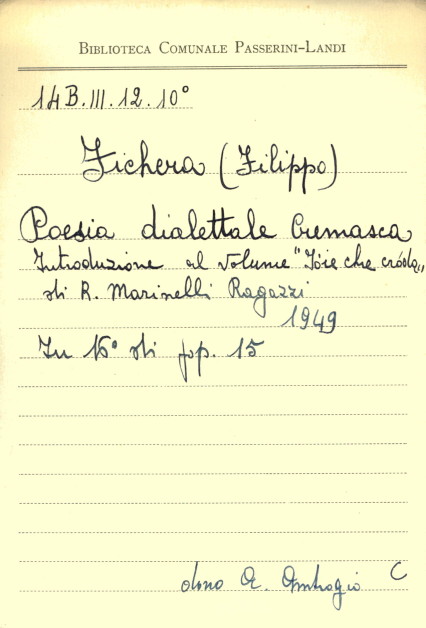 BIBLIOTECA COMUNALE PASSERINI-LANDI
14B.III.12.10°
Fichera (Filippo)
Poesia dialettale Cremasca
Introduzione al volume "Fóie che cróda„
di R. Marinelli Ragazzi
1949
In 16° di pp. 15
dono A. Ambrogio C